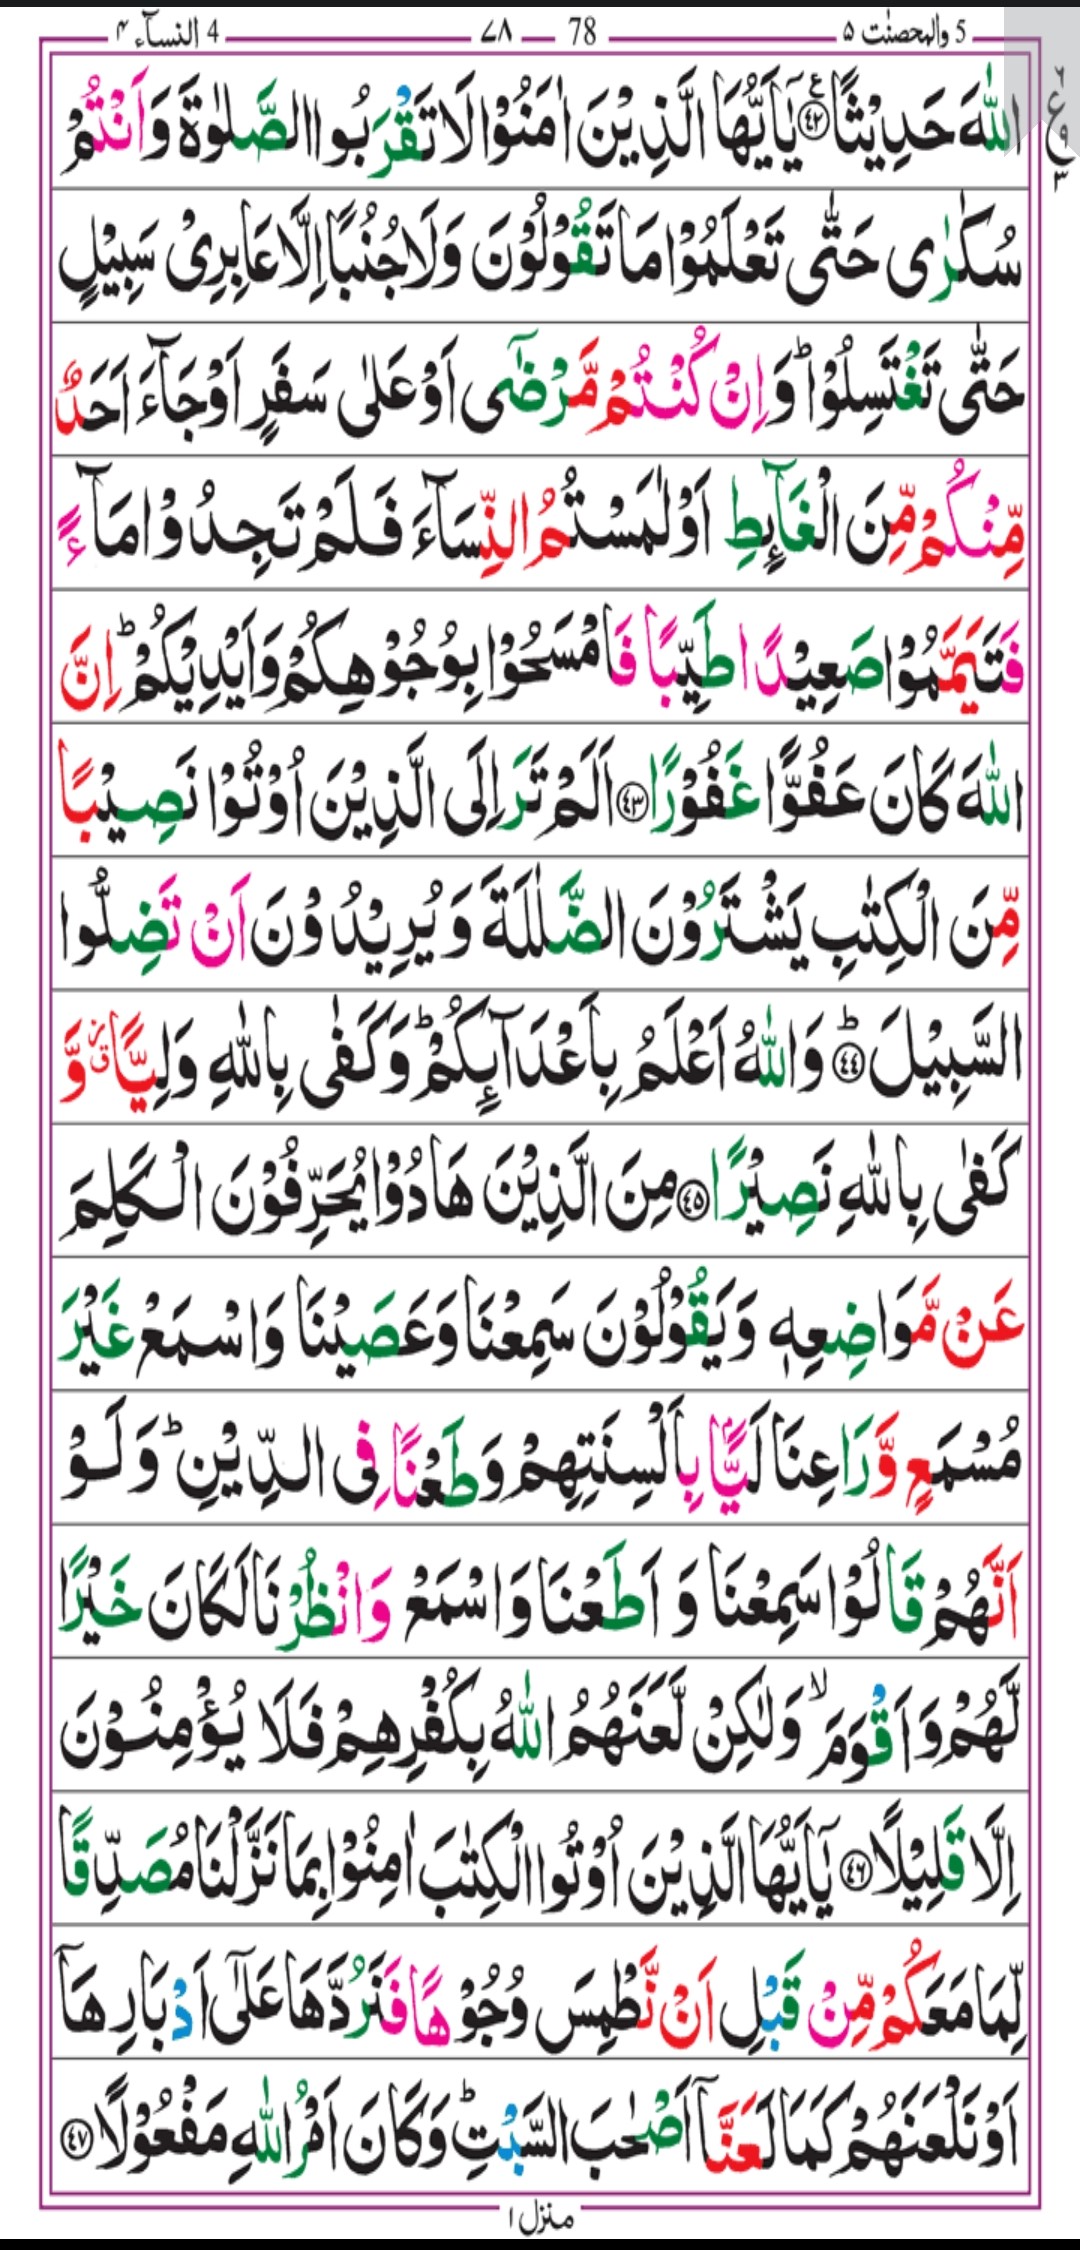 5 والمحصنٰت ٥ — 78 — ٧٨ — 4 النسآء ٤
اللّٰهَ حَدِيْثًا ﴿٤٢﴾ يٰٓاَيُّهَا الَّذِيْنَ اٰمَنُوْا لَا تَقْرَبُوا الصَّلٰوةَ وَاَنْتُمْ
سُكٰرٰى حَتّٰى تَعْلَمُوْا مَا تَقُوْلُوْنَ وَلَا جُنُبًا اِلَّا عَابِرِىْ سَبِيْلٍ
حَتّٰى تَغْتَسِلُوْا ؕ وَاِنْ كُنْتُمْ مَّرْضٰٓى اَوْ عَلٰى سَفَرٍ اَوْ جَآءَ اَحَدٌ
مِّنْكُمْ مِّنَ الْغَآئِطِ اَوْ لٰمَسْتُمُ النِّسَآءَ فَلَمْ تَجِدُوْا مَآءً
فَتَيَمَّمُوْا صَعِيْدًا طَيِّبًا فَامْسَحُوْا بِوُجُوْهِكُمْ وَاَيْدِيْكُمْ ؕ اِنَّ
اللّٰهَ كَانَ عَفُوًّا غَفُوْرًا ﴿٤٣﴾ اَلَمْ تَرَ اِلَى الَّذِيْنَ اُوْتُوْا نَصِيْبًا
مِّنَ الْكِتٰبِ يَشْتَرُوْنَ الضَّلٰلَةَ وَيُرِيْدُوْنَ اَنْ تَضِلُّوا
السَّبِيْلَ ؕ ﴿٤٤﴾ وَاللّٰهُ اَعْلَمُ بِاَعْدَآئِكُمْ ؕ وَكَفٰى بِاللّٰهِ وَلِيًّا ۗ وَّ
كَفٰى بِاللّٰهِ نَصِيْرًا ﴿٤٥﴾ مِنَ الَّذِيْنَ هَادُوْا يُحَرِّفُوْنَ الْكَلِمَ
عَنْ مَّوَاضِعِهٖ وَيَقُوْلُوْنَ سَمِعْنَا وَعَصَيْنَا وَاسْمَعْ غَيْرَ
مُسْمَعٍ وَّرَاعِنَا لَيًّۢا بِاَلْسِنَتِهِمْ وَطَعْنًا فِى الدِّيْنِ ؕ وَلَوْ
اَنَّهُمْ قَالُوْا سَمِعْنَا وَ اَطَعْنَا وَاسْمَعْ وَانْظُرْنَا لَكَانَ خَيْرًا
لَّهُمْ وَاَقْوَمَ ۙ وَلٰكِنْ لَّعَنَهُمُ اللّٰهُ بِكُفْرِهِمْ فَلَا يُؤْمِنُوْنَ
اِلَّا قَلِيْلًا ﴿٤٦﴾ يٰٓاَيُّهَا الَّذِيْنَ اُوْتُوا الْكِتٰبَ اٰمِنُوْا بِمَا نَزَّلْنَا مُصَدِّقًا
لِّمَا مَعَكُمْ مِّنْ قَبْلِ اَنْ نَّطْمِسَ وُجُوْهًا فَنَرُدَّهَا عَلٰٓى اَدْبَارِهَآ
اَوْ نَلْعَنَهُمْ كَمَا لَعَنَّآ اَصْحٰبَ السَّبْتِ ؕ وَكَانَ اَمْرُ اللّٰهِ مَفْعُوْلًا ﴿٤٧﴾
منزل ١